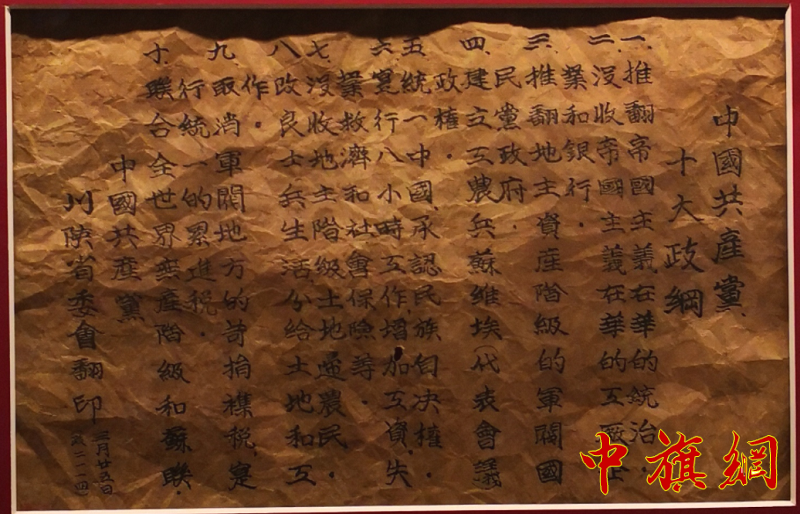 中國共產黨、
十大政綱
一、推翻帝國主義在華的統治。
二、沒收帝國主義在華的工廠企
業和銀行。
三、推翻地主資產階級的軍閥國
民黨政府。
四、建立工農兵蘇維埃(代表會議)
政權。
五、統一中國,承認民族自决權
六、寔行八小時工作,增加工資,失
業救濟和社會保險等。
七、沒收地主階級土地農民。
八、改良士兵生活分給土地和工
作。
九、取消軍閥地方的苛捐雜税,寔
行統一的累進税。
十、聯合全世界無產階級和蘇聯.
中國共產黨
川陝省委會翻印
三月廿五日
中旗網